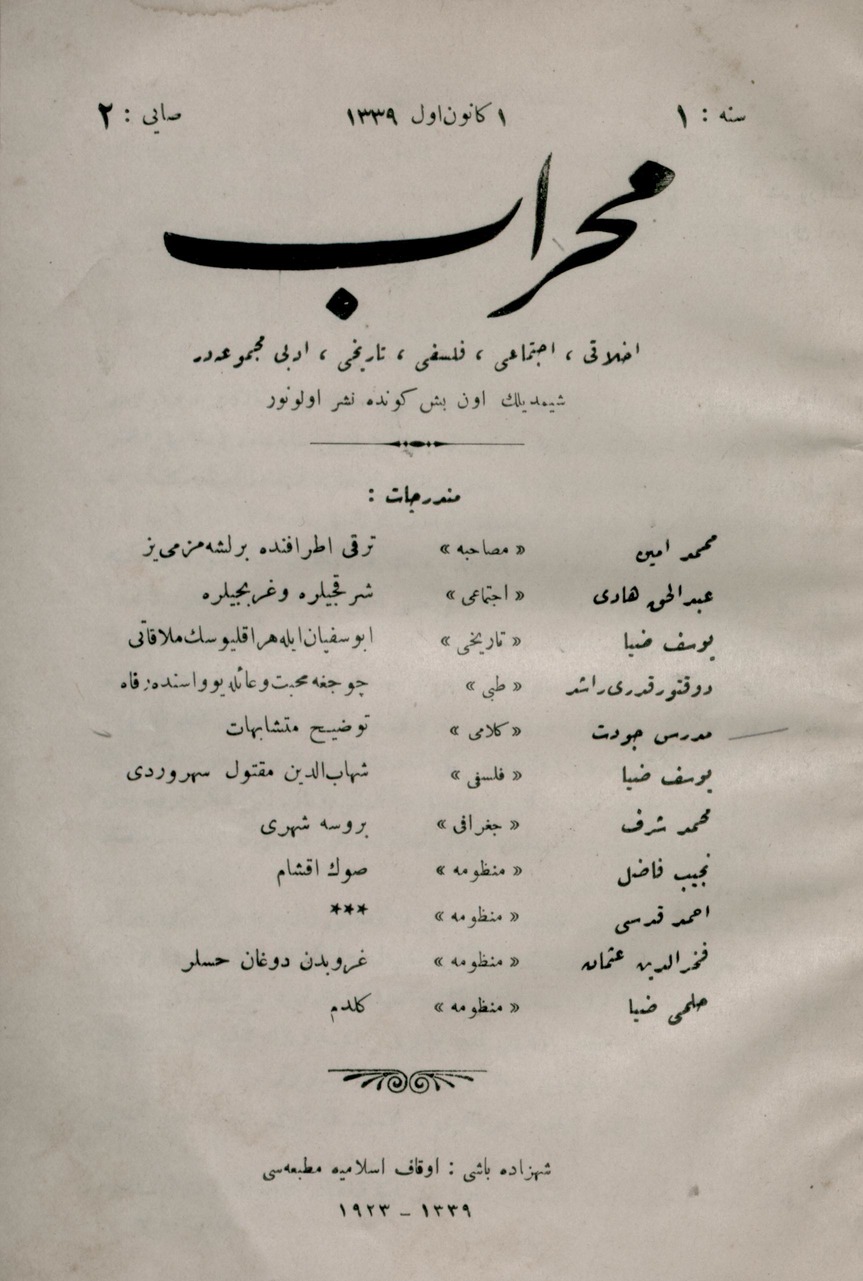 سنه : ١ ١ كانون اول ١٣٣٩ صايى : ٢
محراب
اخلاقى ، اجتماعى ، فلسفى ، تاريخى ، ادبى مجموعه در
شيمديلك اون بش كونده نشر اولونور
مندرجات :
محمد امين « مصاحبه » ترقى اطرافنده برلشه مزمى يز
عبدالحق هادى « اجتماعى » شرقجيلره وغربجيلره
يوسف ضيا « تاريخى » ابوسفيان ايله هراقليوسك ملاقاتى
دوقتور قدرى راشد « طبى » چوجغه محبت وعائله يوواسنده رفاه
مدرس جودت « كلامى » توضيح متشابهات
يوسف ضيا « فلسفى » شهاب الدين مقتول سهروردى
محمد شرف « جغرافى » بروسه شهرى
نجيب فاضل « منظومه » صوك اقشام
احمد قدسى « منظومه » ***
فخرالدين عثمان « منظومه » غروبدن دوغان حسلر
حلمى ضيا « منظومه » كلدم
شهزاده باشى : اوقاف اسلاميه مطبعه سى
١٣٣٩ – ١٩٢٣